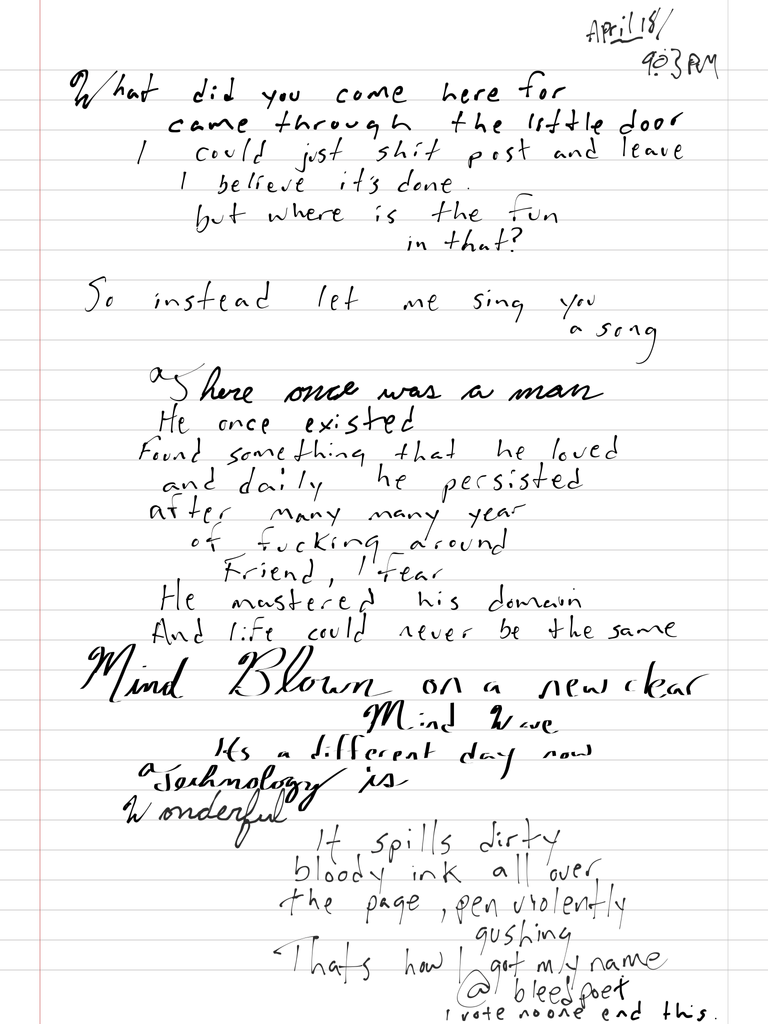 April 18/
9:03 PM
What did you come here for
came through the little door
I could just shit post and leave
I believe it's done.
but where is the fun
in that?
So instead let me sing you
a song
"There once was a man
He once existed
Found something that he loved
and daily he persisted
after many many year
of fucking around
Friend, I fear
He mastered his domain
And life could never be the same
Mind Blown on a new clear
Mind Wave
It's a different day now
"Technology is
Wonderful
It spills dirty
bloody ink all over
the page, pen violently
gushing
Thats how I got my name
@bleedpoet
I vote no one end this.